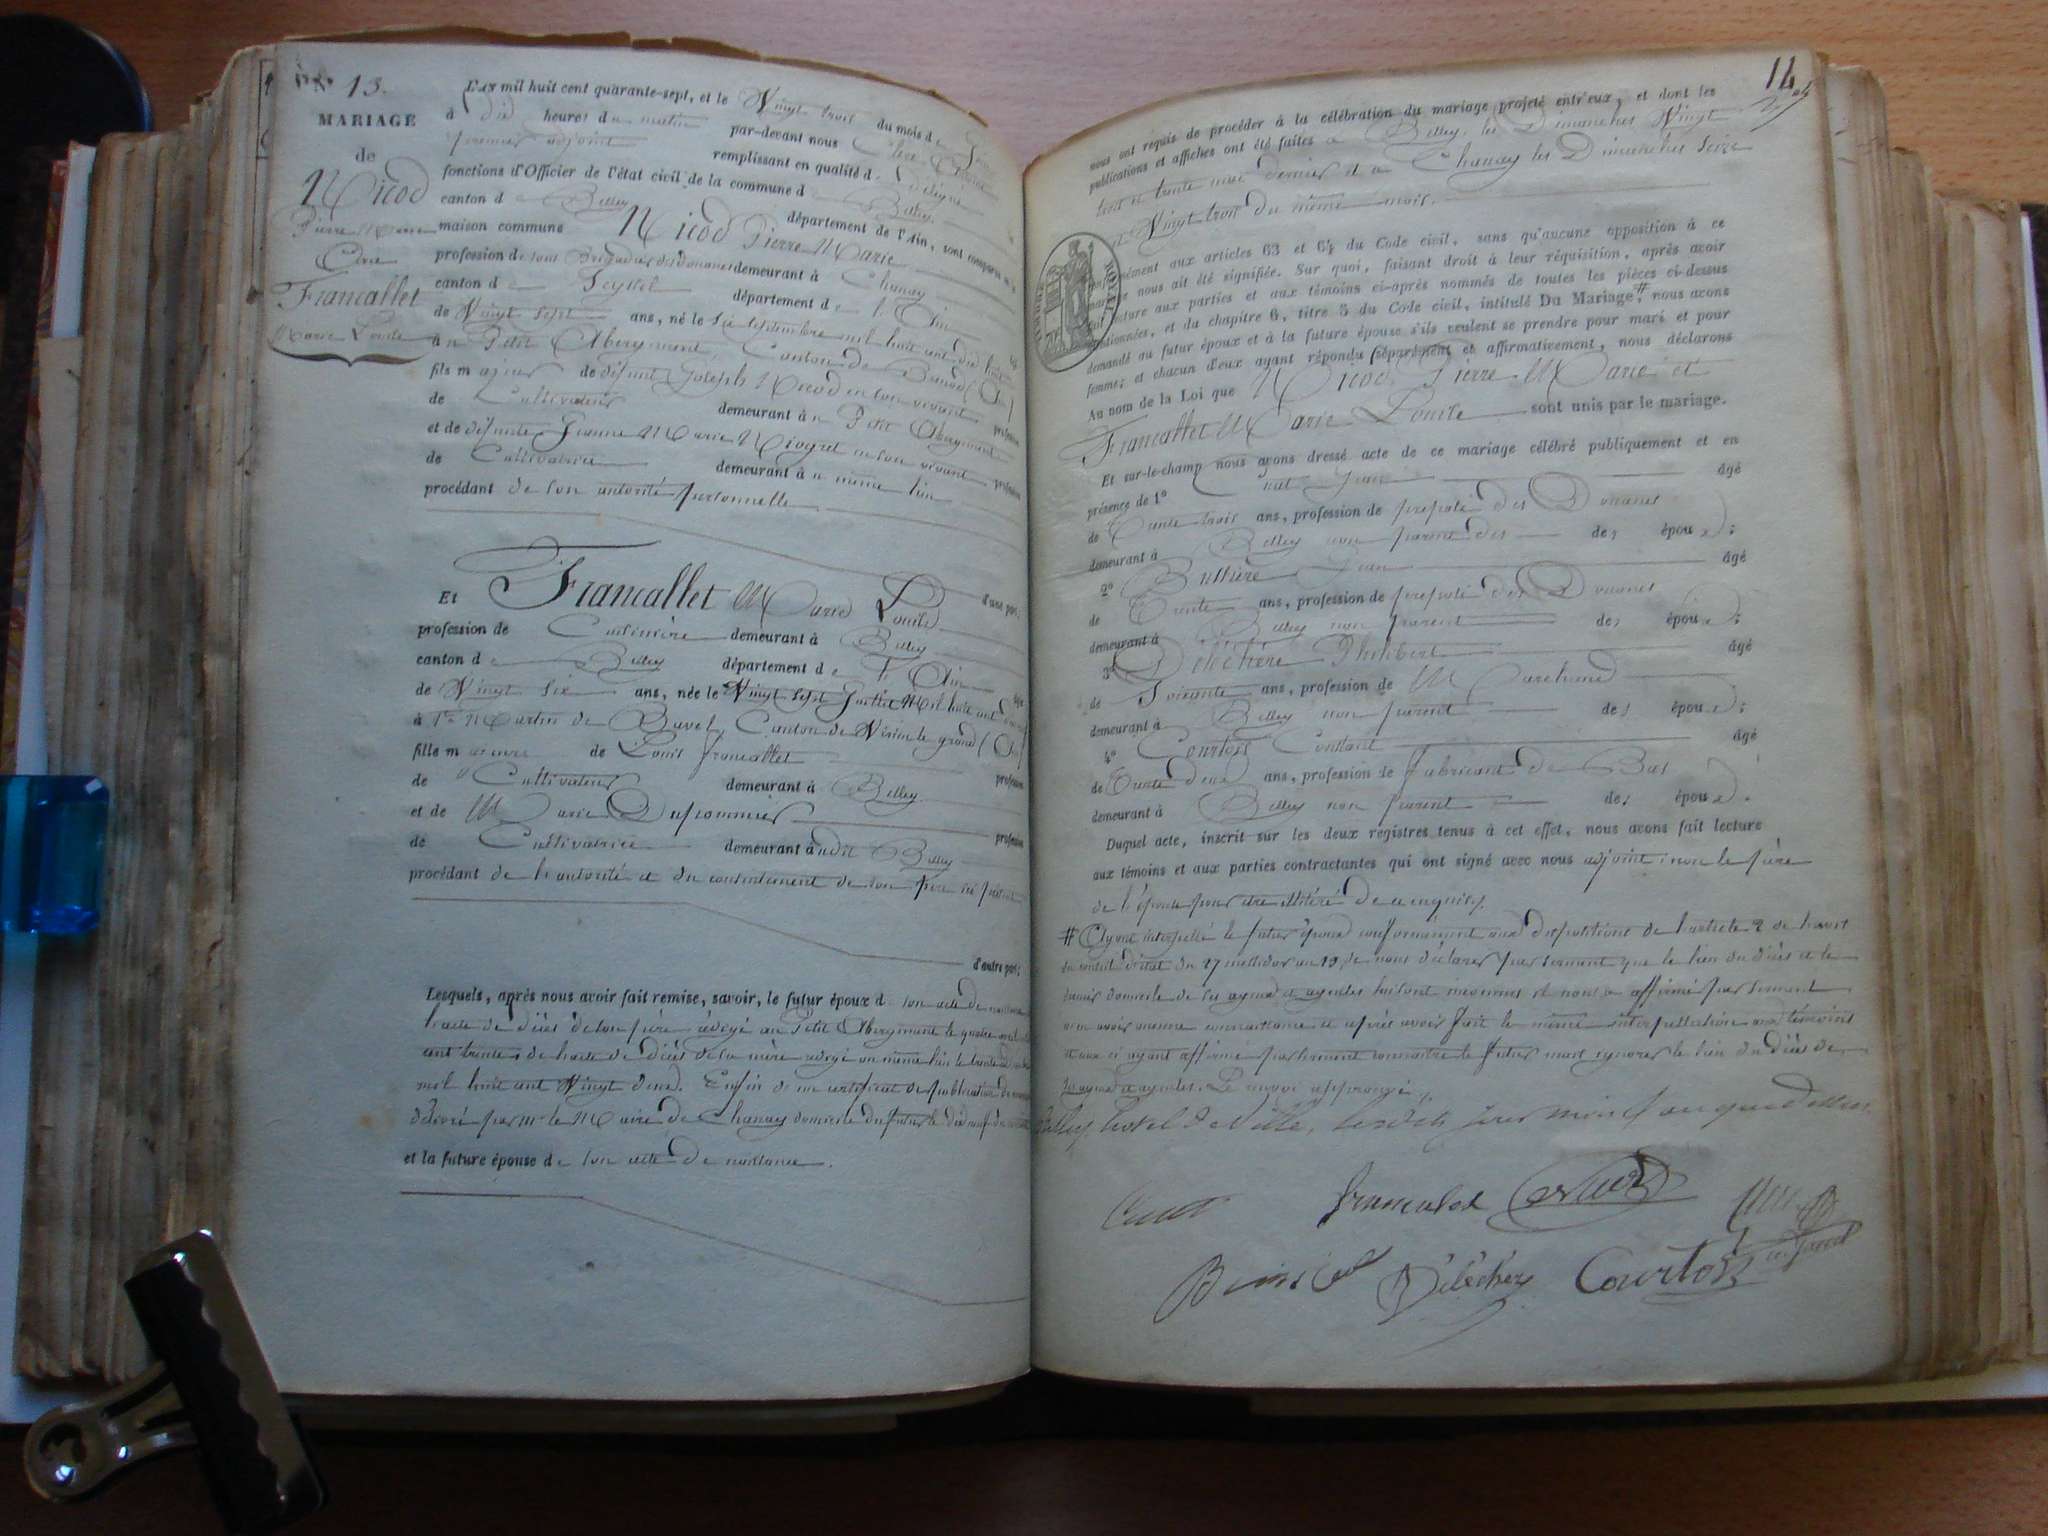 N° 13.
MARIAGE
de
Nicod
Pierre Marie
et
Francallet
Marie Louise
L'an mil huit cent quarante-sept, et le Vingt trois du mois de
à dix heures du matin par-devant nous
premier adjoint remplissant en qualité de délégué
fonctions d'Officier de l'état civil de la commune de Belley
canton de Belley département de l'Ain, sont comparus
maison commune Nicod Pierre Marie
profession de sous Brigadier des douanes demeurant à Chanay
canton de Seyssel département de l'Ain
de Vingt sept ans, né le six septembre mil huit cent dix
à Petit Abergement, Canton de (Ain)
fils majeur de défunt Joseph Nicod en son vivant profession
de Cultivateur demeurant à Petit Abergement
et de défunte Jeanne Marie en son vivant profession
de Cultivatrice demeurant au même lieu
procédant de son autorité personnelle
d'une part;
Et Francallet Marie Louise
profession de Cuisinière demeurant à Belley
canton de Belley département de l'Ain âgée
de Vingt six ans, née le Vingt sept Juillet Mil huit cent
à St Martin de Bavel, Canton de Virieu le grand (Ain)
fille mineure de Louis Francallet profession
de Cultivateur demeurant à Belley
et de Marie Dupommier profession
de Cultivatrice demeurant audit Belley
procédant de l'autorité et du consentement de son père ici présent
d'autre part;
Lesquels, après nous avoir fait remise, savoir, le futur époux de son acte de naissance
l'acte de décès de son père rédigé au Petit Abergement le quatre
cent trente; de l'acte de décès de sa mère rédigé au même lieu le trente
mil huit cent Vingt deux. Enfin de un certificat de publication de
délivré par Mr le Maire de Chanay domicile du futur le dix neuf du
et la future épouse de son acte de naissance.
14
nous ont requis de procéder à la célébration du mariage projeté entr'eux, et dont les
publications et affiches ont été faites à Belley, les Dimanches Vingt
trois et trente mai dernier et à Chanay les Dimanches seize
et Vingt trois du même mois.
Conformément aux articles 63 et 64 du Code civil, sans qu'aucune opposition à ce
mariage nous ait été signifiée. Sur quoi, faisant droit à leur réquisition, après avoir
fait lecture aux parties et aux témoins ci-après nommés de toutes les pièces ci-dessus
mentionnées, et du chapitre 6, titre 5 du Code civil, intitulé Du Mariage,# nous avons
demandé au futur époux et à la future épouse s'ils veulent se prendre pour mari et pour
femme; et chacun d'eux ayant répondu séparément et affirmativement, nous déclarons
Au nom de la Loi que Nicod Pierre Marie et
Francallet Marie Louise sont unis par le mariage.
Et sur-le-champ nous avons dressé acte de ce mariage célébré publiquement et en
présence de 1° Jean âgé
de trente trois ans, profession de préposé des Douanes
demeurant à Belley non parent des de; époux;
2° Bussière Jean âgé
de Trente ans, profession de préposé des Douanes
demeurant à Belley non parent de; époux;
3° Deléchère Philibert âgé
de Soixante ans, profession de Marchand
demeurant à Belley non parent de; époux;
4° Courtois Constant âgé
de Trente deux ans, profession de fabricant de Bas
demeurant à Belley non parent de; époux.
Duquel acte, inscrit sur les deux registres tenus à cet effet, nous avons fait lecture
aux témoins et aux parties contractantes qui ont signé avec nous adjoint; non le père
de l'épouse pour être illitéré de ce enquis.
# Ayant interpellé le futur époux conformément aux dispositions de l'article 2 de l'avis
du conseil d'état du 27 messidor an 13, de nous déclarer par serment que le lieu du décès et le
dernier domicile de ses ayeux et ayeules lui sont inconnus et nous a affirmé par serment
n'en avoir aucune connaissance et après avoir fait la même interpellation aux témoins
et ceux ci ayant affirmé par serment connaitre le futur mais ignorer le lieu du décès de
ses ayeux et ayeules. Le renvoi approuvé.
Belley, hotel de Ville, lesdits jour mois et an que dessus
francalet
Courtois